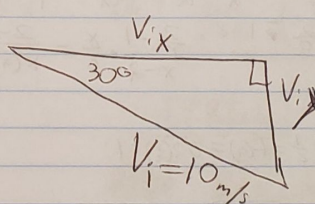 Vix
30°
Viy
Vi=10m/s